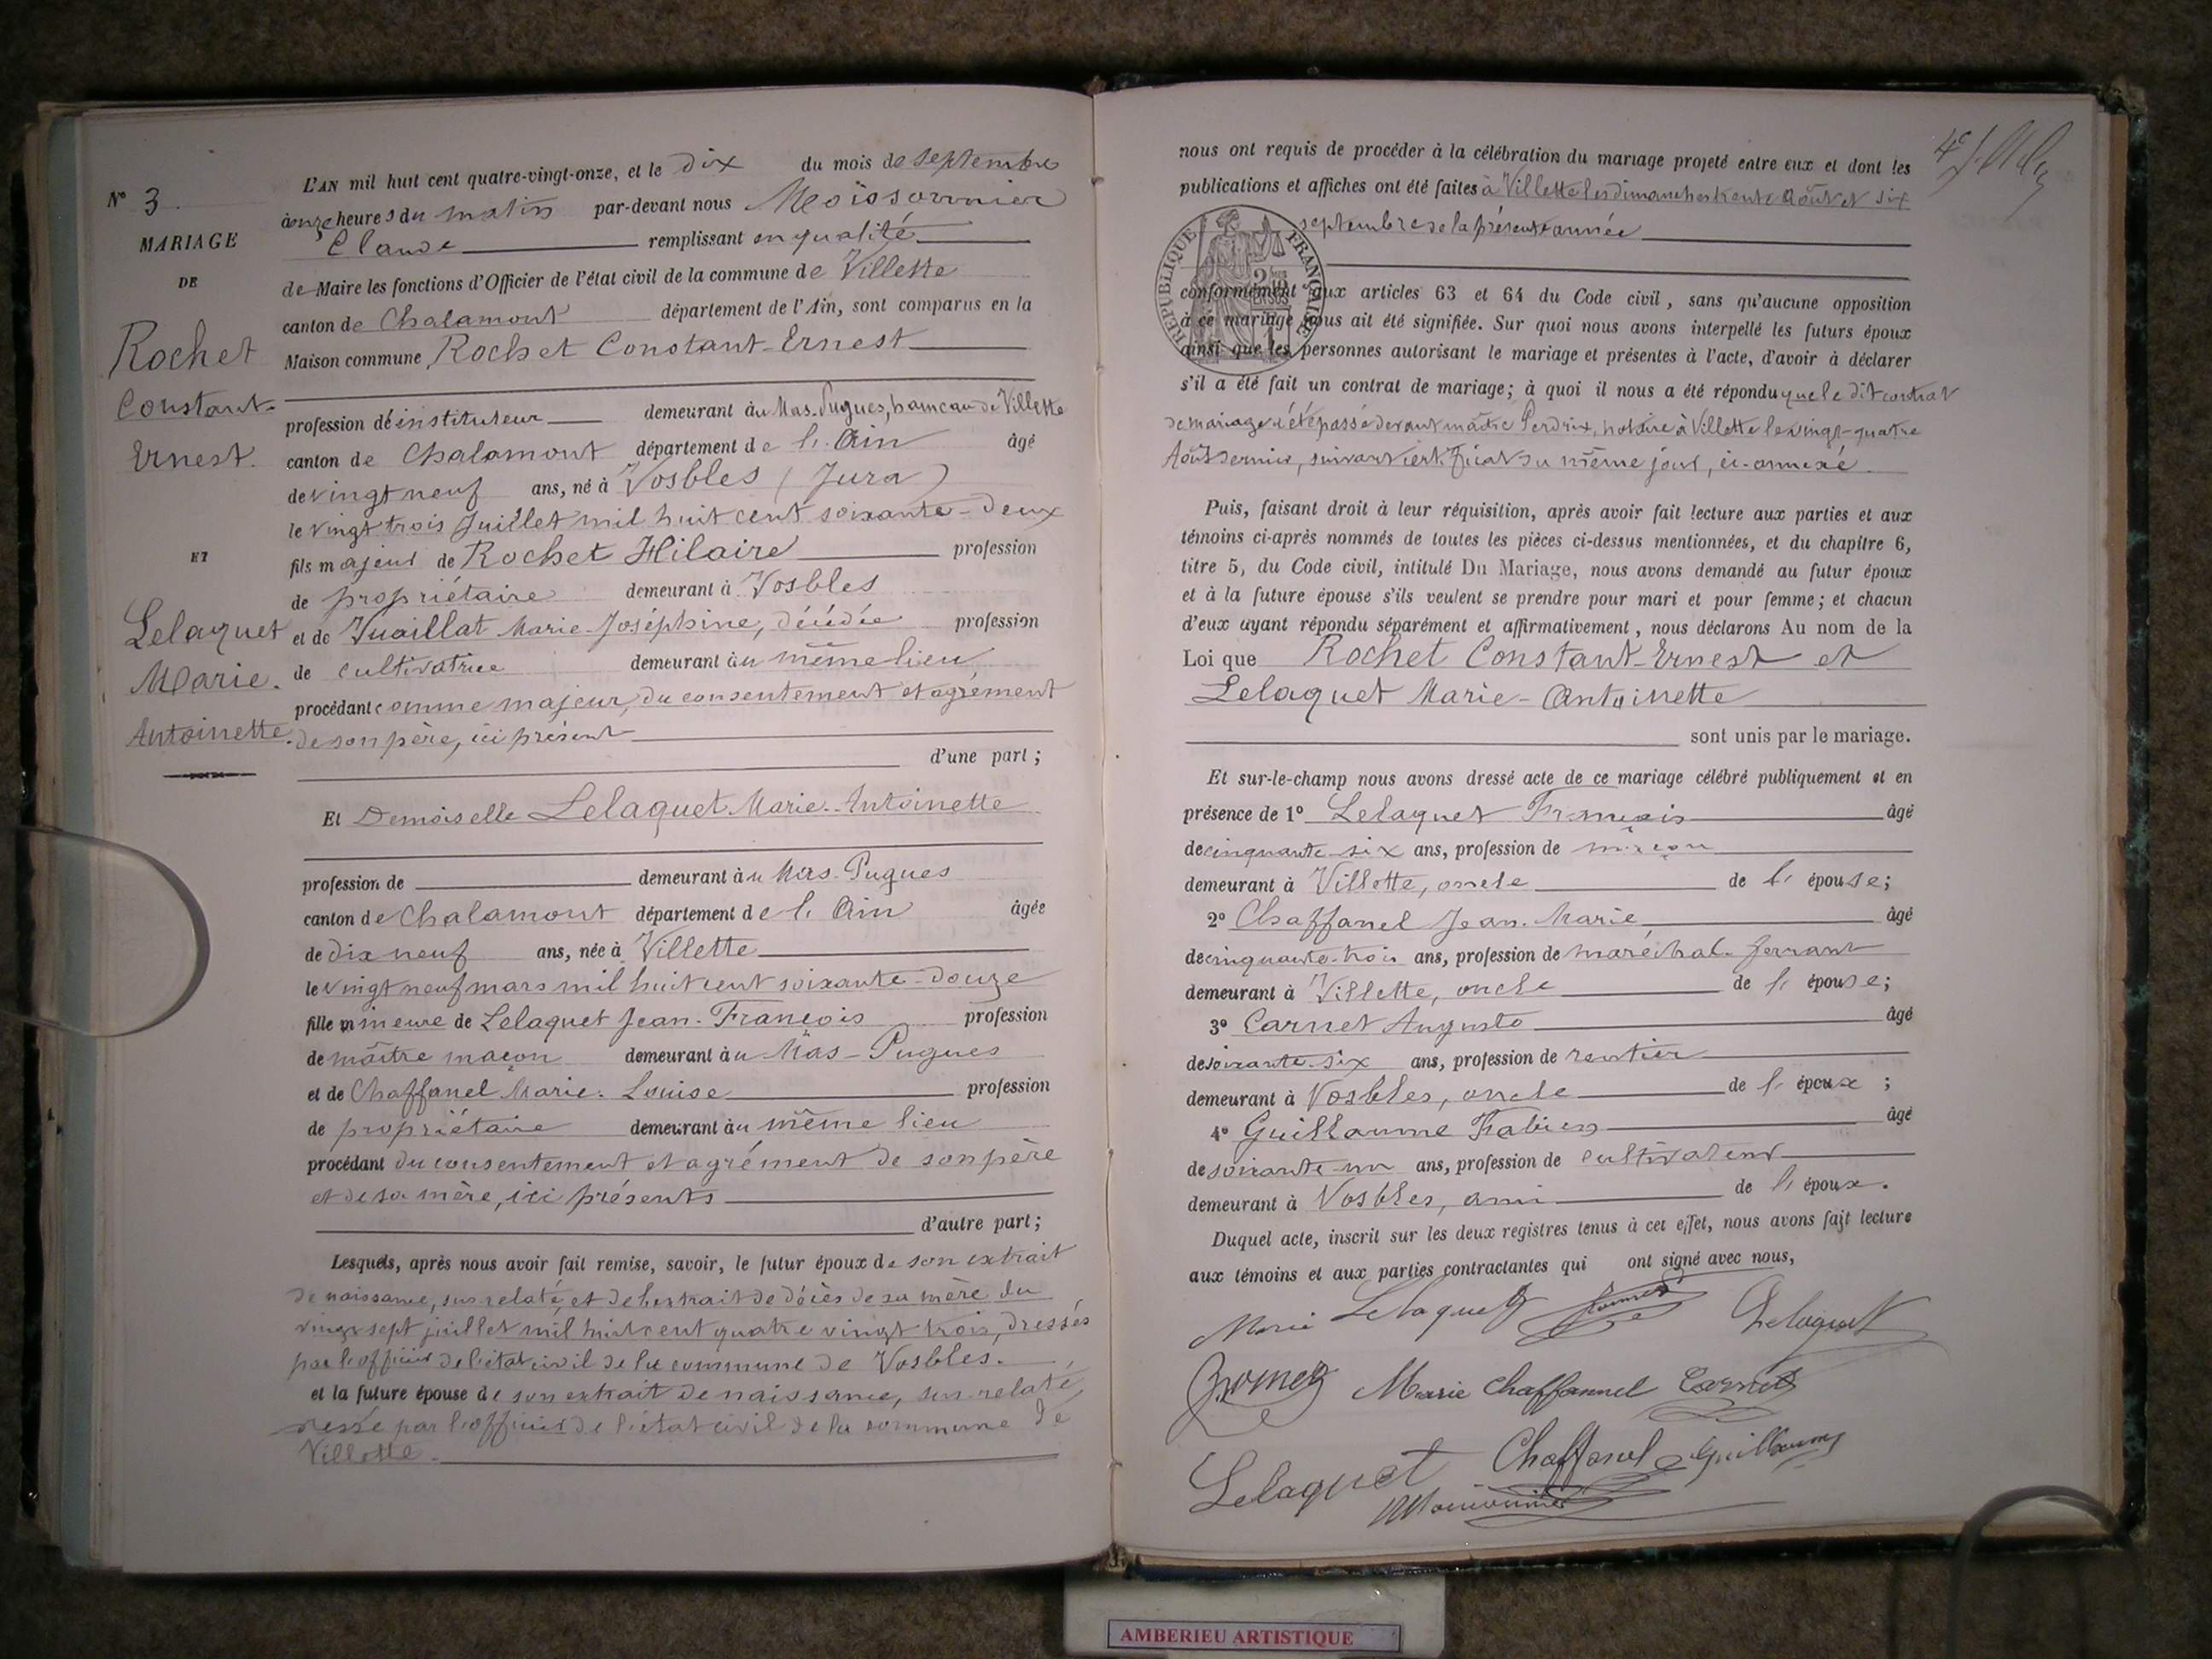 L'AN mil huit cent quatre-vingt-onze, et le dix du mois de septembre
N° 3.
à onze heures du matin par-devant nous Moissonnier
MARIAGE
Claude remplissant en qualité
DE
de Maire les fonctions d'Officier de l'état civil de la commune de Villette
canton de Chalamont département de l'Ain, sont comparus en la
Rochet
Maison commune, Rochet Constant-Ernest
Constant-
profession d'instituteur demeurant au Mas-Pugues, hameau de Villette
Ernest.
canton de Chalamont département de l'Ain âgé
de vingt neuf ans, né à Vosbles (Jura)
le vingt trois Juillet mil huit cent soixante-deux
ET
fils majeur de Rochet Hilaire profession
de propriétaire demeurant à Vosbles
Lelaquet
et de Vuaillat Marie-Joséphine, décédée profession
Marie.
de cultivatrice demeurant au même lieu
procédant comme majeur, du consentement et agrément
Antoinette.
de son père, ici présent
d'une part;
Et Demoiselle Lelaquet Marie-Antoinette
profession de demeurant au Mas-Pugues
canton de Chalamont département de l'Ain âgée
de dix neuf ans, née à Villette
le vingt neuf mars mil huit cent soixante-douze
fille mineure de Lelaquet Jean-François profession
de maître maçon demeurant au Mas-Pugues
et de Chaffanel Marie-Louise profession
de propriétaire demeurant au même lieu
procédant du consentement et agrément de son père
et de sa mère, ici présents
d'autre part;
Lesquels, après nous avoir fait remise, savoir, le futur époux de son extrait
de naissance, sus relaté, et de l'extrait de décès de sa mère du
vingt sept juillet mil huit cent quatre vingt trois, dressés
par l'officier de l'état civil de la commune de Vosbles.
et la future épouse de son extrait de naissance, sus-relaté,
dressé par l'officier de l'état civil de la commune de
Villette.
nous ont requis de procéder à la célébration du mariage projeté entre eux et dont les
publications et affiches ont été faites à Villette les dimanches trente Août et six
septembre de la présente année
RÉPUBLIQUE FRANÇAISE
conformément aux articles 63 et 64 du Code civil, sans qu'aucune opposition
à ce mariage nous ait été signifiée. Sur quoi nous avons interpellé les futurs époux
ainsi que les personnes autorisant le mariage et présentes à l'acte, d'avoir à déclarer
s'il a été fait un contrat de mariage; à quoi il nous a été répondu que le dit contrat
de mariage a été passé devant maître Perdrix, notaire à Villette le vingt-quatre
Août dernier, suivant certificat du même jour, ci-annexé.
Puis, faisant droit à leur réquisition, après avoir fait lecture aux parties et aux
témoins ci-après nommés de toutes les pièces ci-dessus mentionnées, et du chapitre 6,
titre 5, du Code civil, intitulé Du Mariage, nous avons demandé au futur époux
et à la future épouse s'ils veulent se prendre pour mari et pour femme; et chacun
d'eux ayant répondu séparément et affirmativement, nous déclarons Au nom de la
Loi que Rochet Constant-Ernest et
Lelaquet Marie-Antoinette
sont unis par le mariage.
Et sur-le-champ nous avons dressé acte de ce mariage célébré publiquement et en
présence de 1° Lelaquet François âgé
de cinquante-six ans, profession de maçon
demeurant à Villette, oncle de l'épouse;
2° Chaffanel Jean-Marie, âgé
de cinquante-trois ans, profession de maréchal-ferrant
demeurant à Villette, oncle de l'épouse;
3° Carnet Auguste âgé
de soixante-six ans, profession de rentier
demeurant à Vosbles, oncle de l'époux;
4° Guillaume Fabien âgé
de soixante-un ans, profession de cultivateur
demeurant à Vosbles, ami de l'époux.
Duquel acte, inscrit sur les deux registres tenus à cet effet, nous avons fait lecture
aux témoins et aux parties contractantes qui ont signé avec nous,
Marie Lelaquet Lelaquet
Marie Chaffannel Carnet
Lelaquet Chaffanel Guillaume
Moissonnier
AMBERIEU ARTISTIQUE